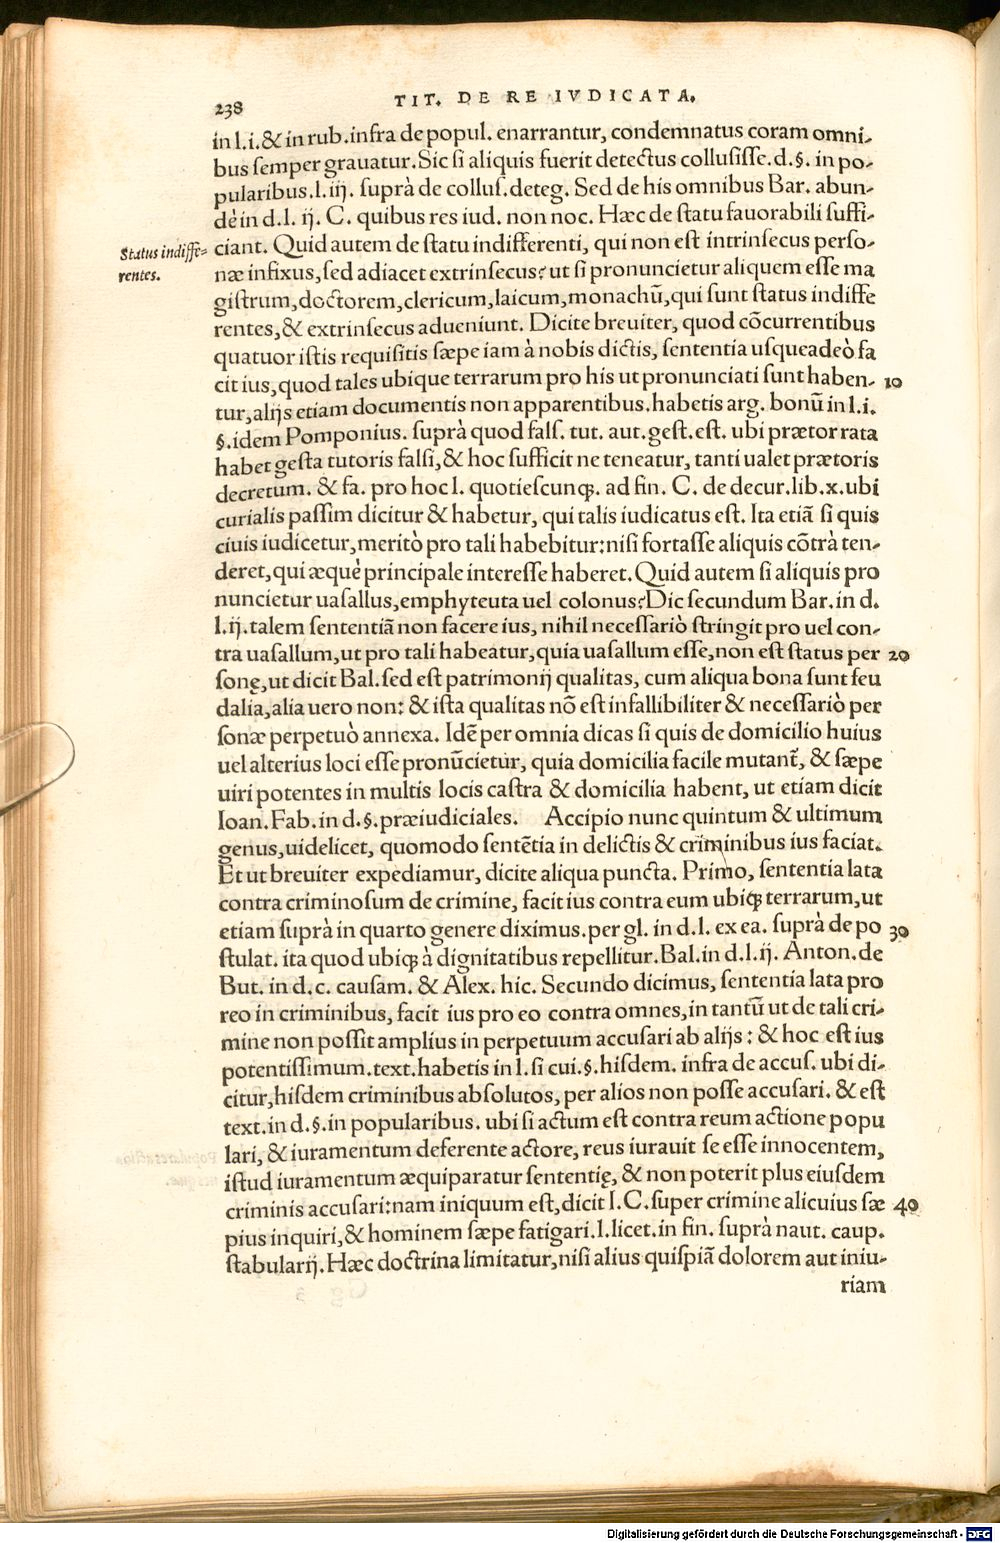 238 TIT. DE RE IVDICATA.
in l.i.& in rub.infra de popul. enarrantur, condemnatus coram omni-
bus semper grauatur.Sic si aliquis fuerit detectus collusisse.d.§. in po-
pularibus.l.iij. suprà de collus.deteg. Sed de his omnibus Bar. abun-
dè in d.l. ij. C. quibus res iud. non noc. Hæc de statu fauorabili suffi-
Status indiffe= ciant. Quid autem de statu indifferenti, qui non est intrinsecus perso-
rentes. næ infixus, sed adiacet extrinsecus? ut si pronuncietur aliquem esse ma
gistrum,doctorem,clericum,laicum,monachũ,qui sunt status indiffe
rentes,& extrinsecus adueniunt. Dicite breuiter, quod cõcurrentibus
quatuor istis requisitis sæpe iam à nobis dictis, sententia usqueadeò fa
cit ius,quod tales ubique terrarum pro his ut pronunciati sunt haben- 10
tur,alijs etiam documentis non apparentibus.habetis arg. bonũ in l.i.
§.idem Pomponius. suprà quod fals. tut. aut.gest.est. ubi prætor rata
habet gesta tutoris falsi,& hoc sufficit ne teneatur, tanti ualet prætoris
decretum. & fa. pro hoc l. quotiescunq;. ad fin. C. de decur.lib.x.ubi
curialis passim dicitur & habetur, qui talis iudicatus est. Ita etiã si quis
ciuis iudicetur,meritò pro tali habebitur:nisi fortasse aliquis cõtrà ten-
deret,qui æquè principale interesse haberet.Quid autem si aliquis pro
nuncietur uasallus,emphyteuta uel colonus?Dic secundum Bar.in d.
l.ij.talem sententiã non facere ius, nihil necessariò stringit pro uel con-
tra uasallum,ut pro tali habeatur,quia uasallum esse,non est status per 20
sonę,ut dicit Bal.sed est patrimonij qualitas, cum aliqua bona sunt feu
dalia,alia uero non: & ista qualitas nõ est infallibiliter & necessariò per
sonæ perpetuò annexa. Idẽ per omnia dicas si quis de domicilio huius
uel alterius loci esse pronũcietur, quia domicilia facile mutant̃, & sæpe
uiri potentes in multis locis castra & domicilia habent, ut etiam dicit
Ioan.Fab.in d.§.præiudiciales. Accipio nunc quintum & ultimum
genus,uidelicet, quomodo sentẽtia in delictis & criminibus ius faciat.
Et ut breuiter expediamur, dicite aliqua puncta. Primo, sententia lata
contra criminosum de crimine, facit ius contra eum ubiq; terrarum,ut
etiam suprà in quarto genere diximus.per gl. in d.l. ex ea. suprà de po 30
stulat. ita quod ubiq; à dignitatibus repellitur.Bal.in d.l.ij. Anton.de
But. in d.c. causam. & Alex. hic. Secundo dicimus, sententia lata pro
reo in criminibus, facit ius pro eo contra omnes,in tantũ ut de tali cri-
mine non possit amplius in perpetuum accusari ab alijs: & hoc est ius
potentissimum.text.habetis in l.si cui.§.hisdem. infra de accus. ubi di-
citur,hisdem criminibus absolutos, per alios non posse accusari. & est
text.in d.§.in popularibus. ubi si actum est contra reum actione popu
lari, & iuramentum deferente actore, reus iurauit se esse innocentem,
istud iuramentum æquiparatur sententię, & non poterit plus eiusdem
criminis accusari:nam iniquum est,dicit I.C.super crimine alicuius sæ 40
pius inquiri,& hominem sæpe fatigari.l.licet.in fin. suprà naut. caup.
stabularij.Hæc doctrina limitatur,nisi alius quispiã dolorem aut iniu-
riam
Digitalisierung gefördert durch die Deutsche Forschungsgemeinschaft - DFG